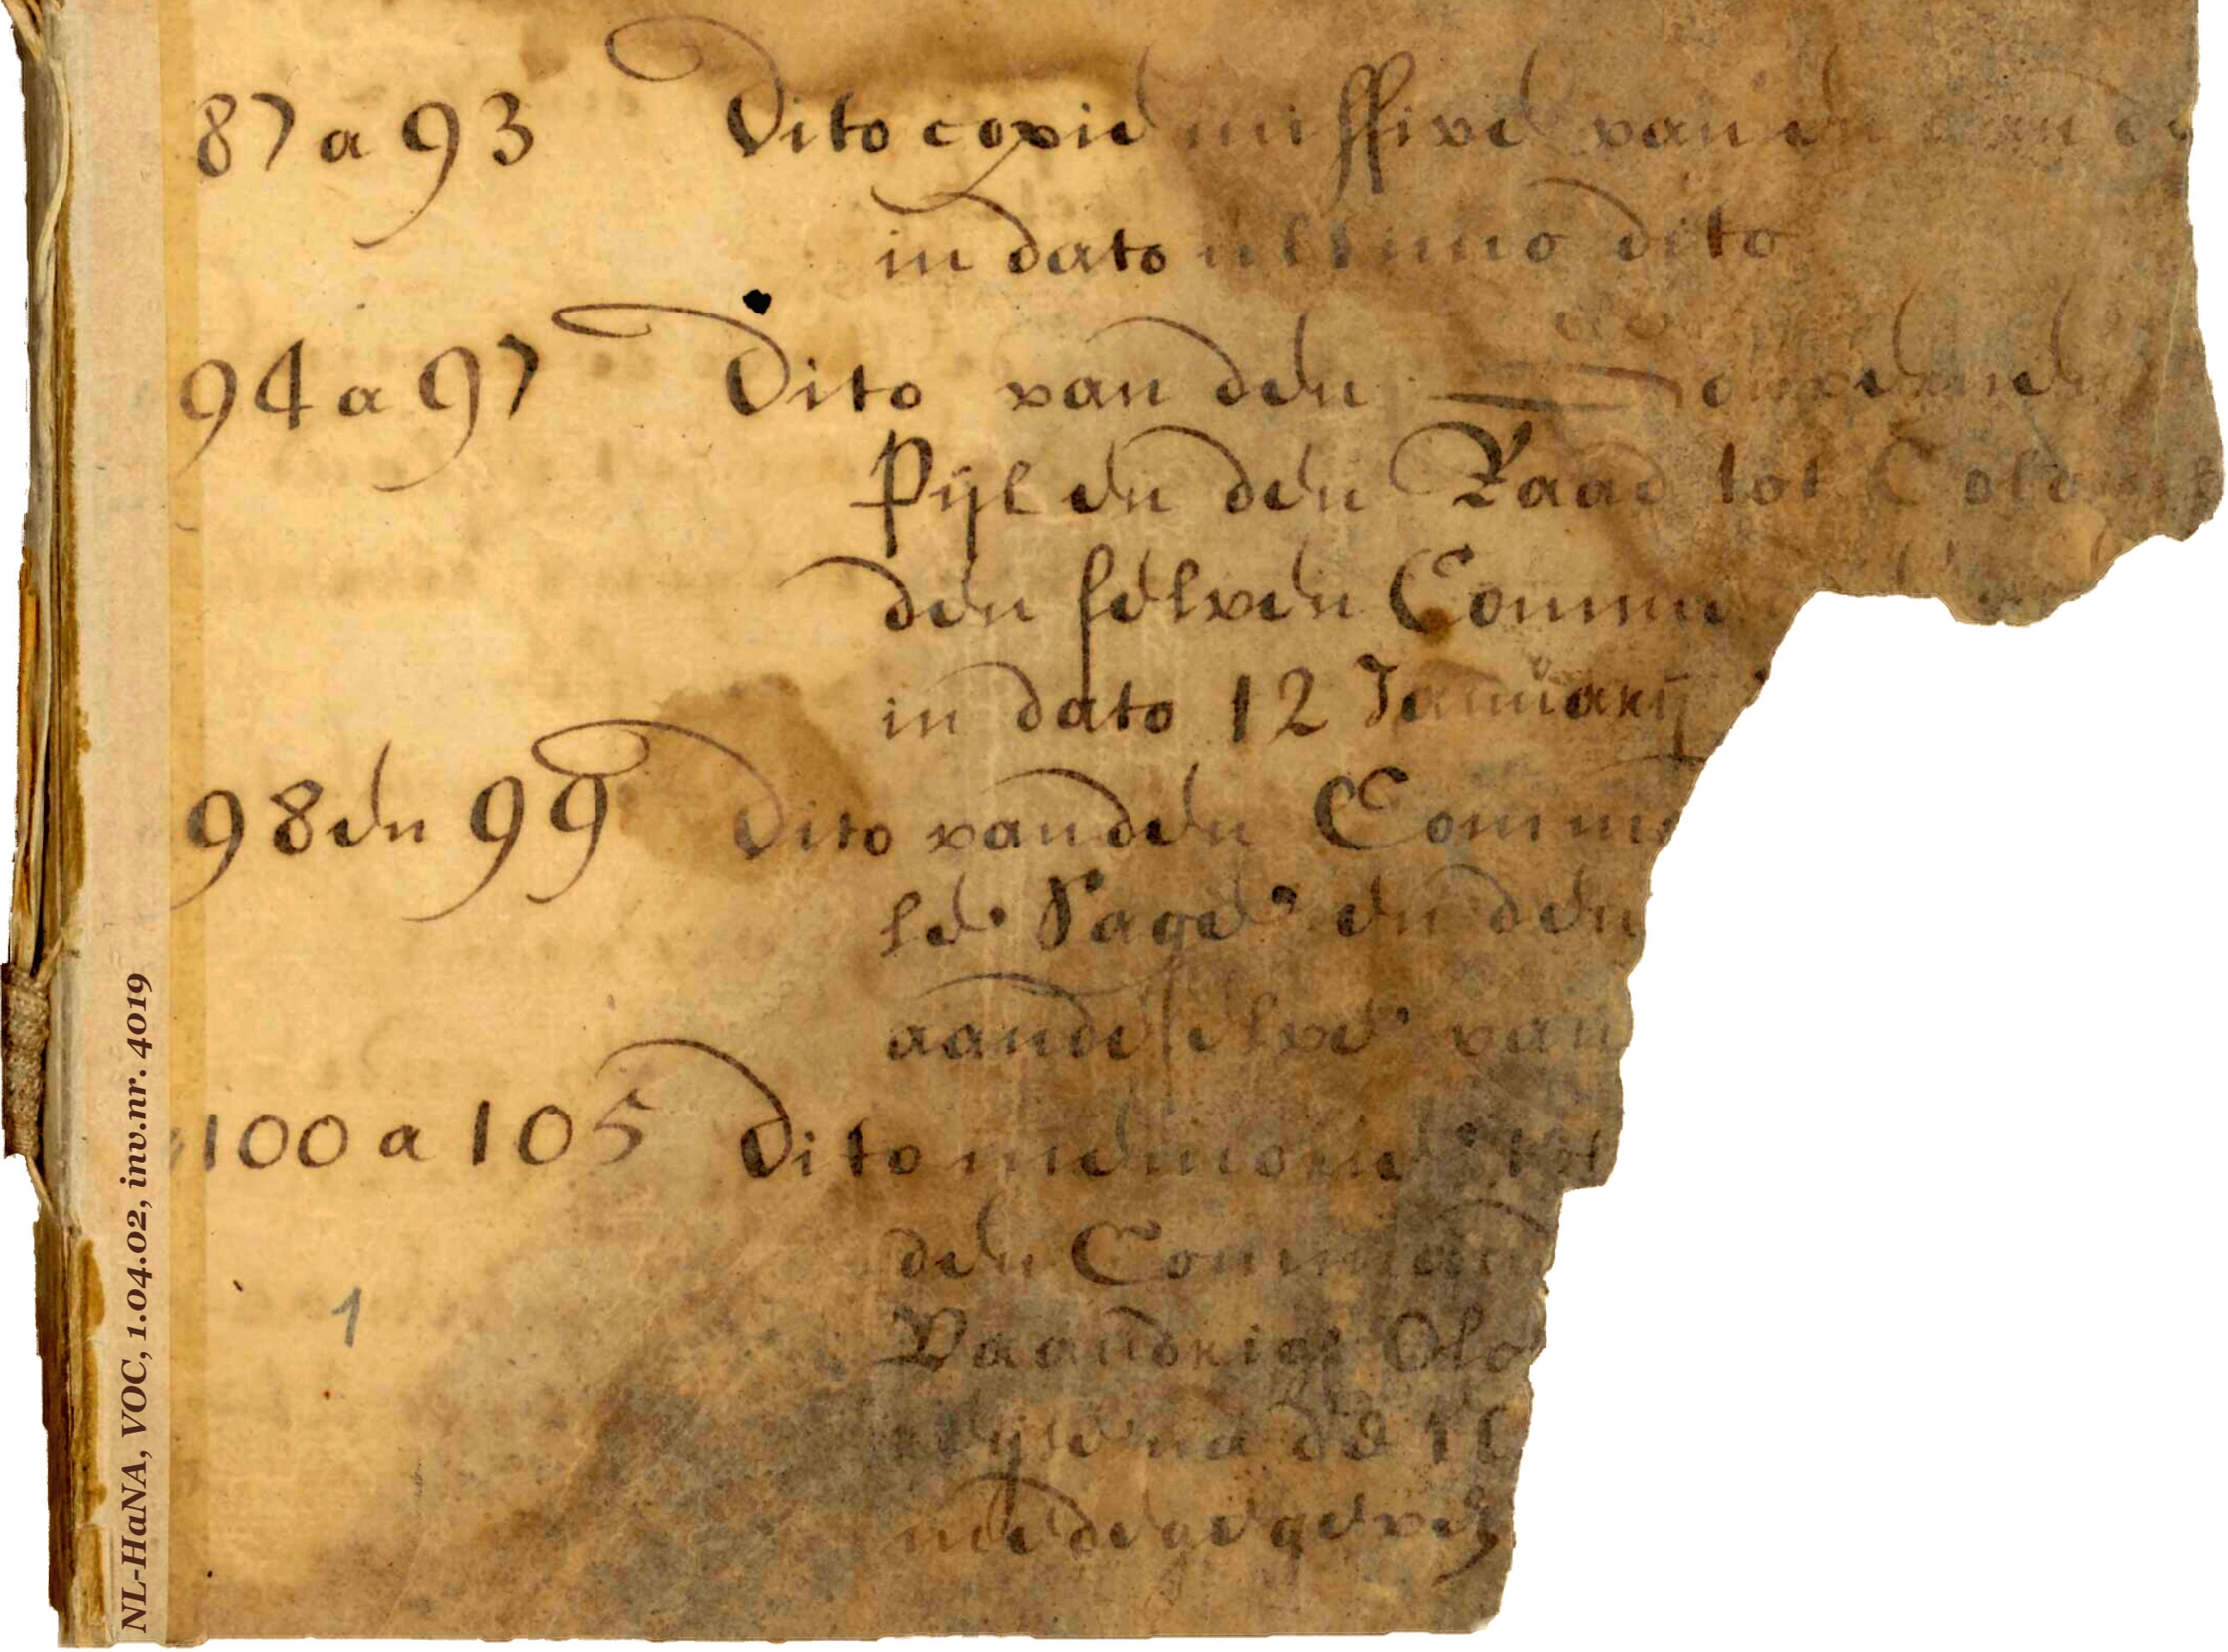 87 a 93 Dito copie missive van en aan de
in dato ultimo dito
94 a 97 Dito van den Gouverneur
Pijl en den Raad tot Colom
den selven Comm
in dato 12 Januarij
98 en 99 Dito van den Comm
le Sage en den
aan de selve van
100 a 105 Dito memorie tot
den Command
Vaandrig Olo
na de
medegegeven
1
NL-HaNA, VOC, 1.04.02, inv.nr. 4019